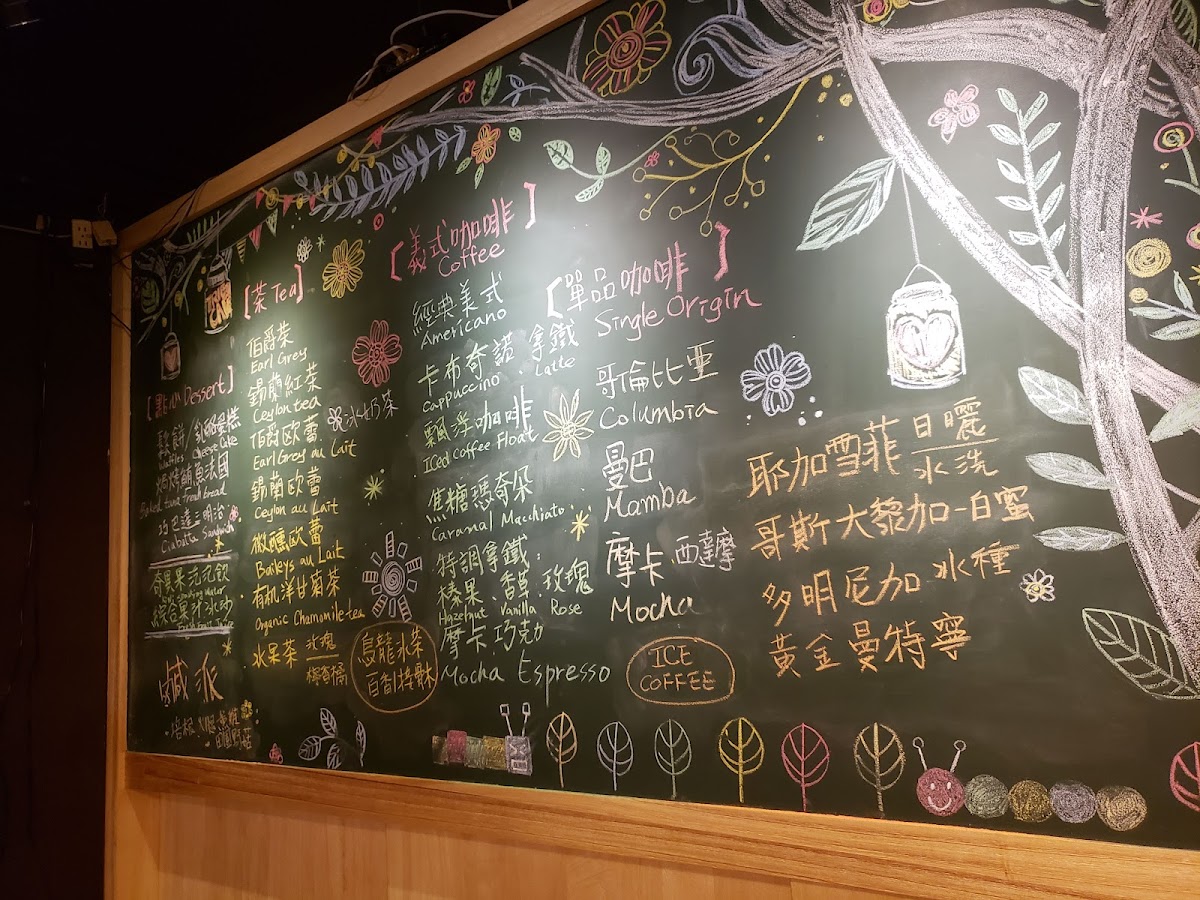 [點心 Dessert]
鬆餅/乳酪蛋糕
Waffles Cheese Cake
焗烤鮪魚法國
Baked tuna fresh bread
巧巴達三明治
Ciabatta Sandwich
奇異果沅沅飲
綜合果汁冰沙
Fresh Fruit Juice
鹹派
[茶 Tea]
伯爵茶
Earl Grey
錫蘭紅茶
Ceylon tea
冰奶茶
伯爵歐蕾
Earl Grey au Lait
錫蘭歐蕾
Ceylon au Lait
微醺歐蕾
Baileys au Lait
有机洋甘菊茶
Organic Chamomile tea
水果茶 玫瑰
檸香橘
烏龍冰茶
百香
[義式咖啡]
Coffee
經典美式
Americano
卡布奇諾、拿鐵
Cappuccino、Latte
飄浮咖啡
ICed Coffee Float
焦糖瑪奇朵
Caramal Macchiato
特調拿鐵:
榛果、香草、玫瑰
Hazelnut、Vanilla、Rose
摩卡.巧克力
Mocha Espresso
[單品咖啡]
Single Origin
哥倫比亞
Columbia
曼巴
Mamba
摩卡 西達摩
Mocha
ICE
COFFEE
耶加雪菲 日曬
水洗
哥斯大黎加-白蜜
多明尼加 水種
黃金曼特寧